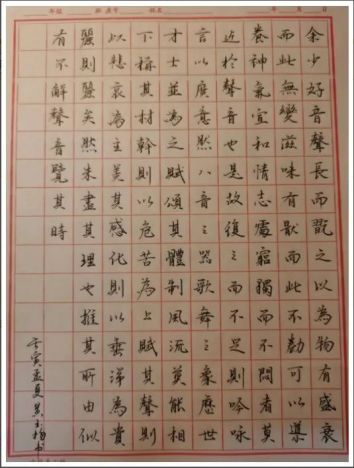 余少好音聲長而翫之以為物有盛衰
而此無變滋味有猒而此不勌可以導
養神氣宣和情志處窮獨而不悶者莫
近於聲音也是故復之而不足則吟詠
言以廣意然八音之器歌舞之象歷世
才士並為之賦頌其體制風流莫能相
下稱其材幹則以危苦為上賦其聲則
以悲哀為主美其感化則以垂涕為貴
麗則麗矣然未盡其理也推其所由似
有不解聲音覽其時
壬寅孟夏書